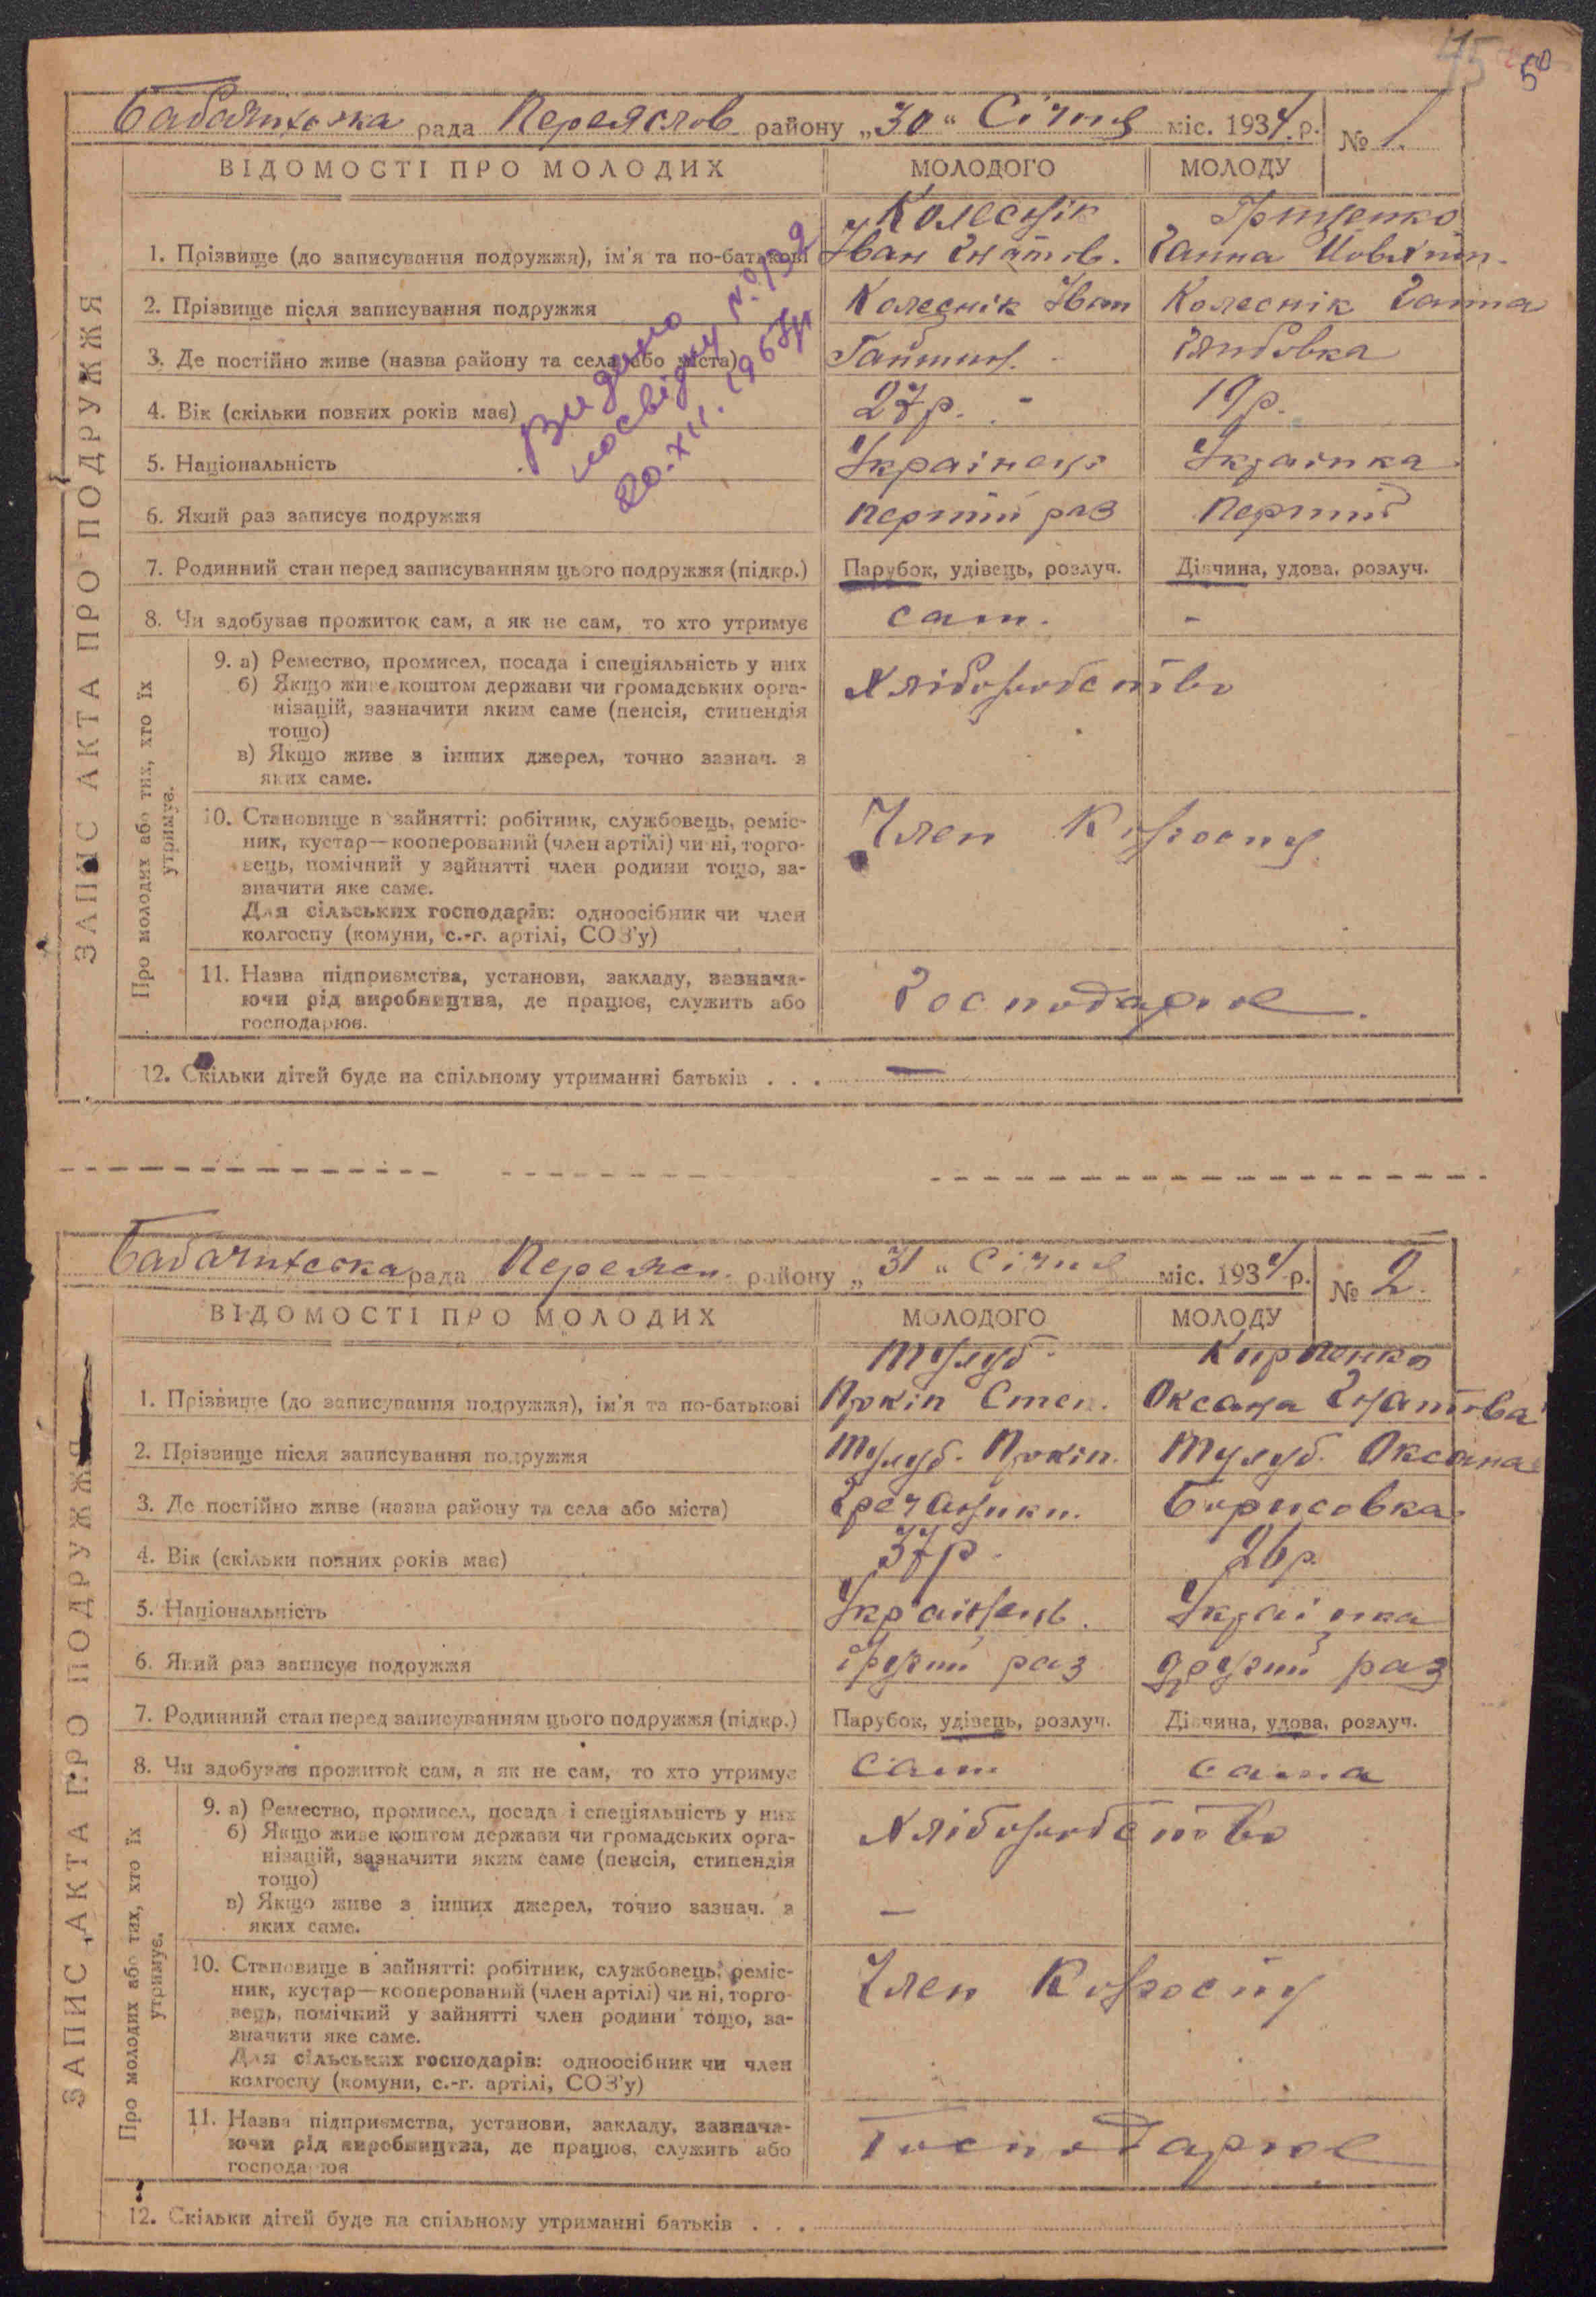 75 50
Бабачихська рада Переяслов району „30“ Січня міс. 1934 р. № 1.
ВІДОМОСТІ ПРО МОЛОДИХ МОЛОДОГО МОЛОДУ
ЗАПИС АКТА ПРО ПОДРУЖЖЯ
Колеснік Грищенко
1. Прізвище (до записування подружжя), ім'я та по-батькові Іван Гнатов. Ганна
2. Прізвище після записування подружжя Колеснік Іван Колеснік Ганна
3. Де постійно живе (назва району та села або міста) Гайшин.
4. Вік (скільки повних років має) 27р. - 19р.
5. Національність Українець Українка
6. Який раз записує подружжя перший раз перший
Видано
посвідку № 132
20.XII.1967р
7. Родинний стан перед записуванням цього подружжя (підкр.) Парубок, удівець, розлуч. Дівчина, удова, розлуч.
8. Чи здобував прожиток сам, а як не сам, то хто утримує сам. -
Про молодих або тих, хто їх
утримує.
9. а) Ремество, промисел, посада і спеціяльність у них Хліборобство
б) Якщо живе коштом держави чи громадських орга-
нізацій, зазначити яким саме (пенсія, стипендія
тощо)
в) Якщо живе з інших джерел, точно зазнач. з
яких саме.
10. Становище в зайнятті: робітник, службовець, реміс- Член Колгоспу
ник, кустар—кооперований (член артілі) чи ні, торго-
вець, помічний у зайнятті член родини тощо, за-
значити яке саме.
Для сільських господарів: одноосібник чи член
колгоспу (комуни, с.-г. артілі, СОЗ'у)
11. Назва підприємства, установи, закладу, зазнача-
ючи рід виробництва, де працює, служить або Господарює
господарює.
12. Скільки дітей буде на спільному утриманні батьків . . . —
Бабачихська рада Переясл. району „31“ Січня міс. 1934 р. № 2.
ВІДОМОСТІ ПРО МОЛОДИХ МОЛОДОГО МОЛОДУ
ЗАПИС АКТА ПРО ПОДРУЖЖЯ
Тулуб Кириченко
1. Прізвище (до записування подружжя), ім'я та по-батькові Прокіп Степ. Оксана Гнатова
2. Прізвище після записування подружжя Тулуб. Прокіп. Тулуб. Оксана
3. Де постійно живе (назва району та села або міста) Гречаники. Борисовка.
4. Вік (скільки повних років має) 37р. 26р.
5. Національність Українець. Українка
6. Який раз записує подружжя другий раз другий раз
7. Родинний стан перед записуванням цього подружжя (підкр.) Парубок, удівець, розлуч. Дівчина, удова, розлуч.
8. Чи здобував прожиток сам, а як не сам, то хто утримує сам сама
Про молодих або тих, хто їх
утримує.
9. а) Ремество, промисел, посада і спеціяльність у них
б) Якщо живе коштом держави чи громадських орга- Хліборобство
нізацій, зазначити яким саме (пенсія, стипендія
тощо)
в) Якщо живе з інших джерел, точно зазнач. з —
яких саме.
10. Становище в зайнятті: робітник, службовець, реміс- Член Колгоспу
ник, кустар—кооперований (член артілі) чи ні, торго-
вець, помічний у зайнятті член родини тощо, за-
значити яке саме.
Для сільських господарів: одноосібник чи член
колгоспу (комуни, с.-г. артілі, СОЗ'у)
11. Назва підприємства, установи, закладу, зазнача-
ючи рід виробництва, де працює, служить або Господарює
господарює
12. Скільки дітей буде на спільному утриманні батьків . . .